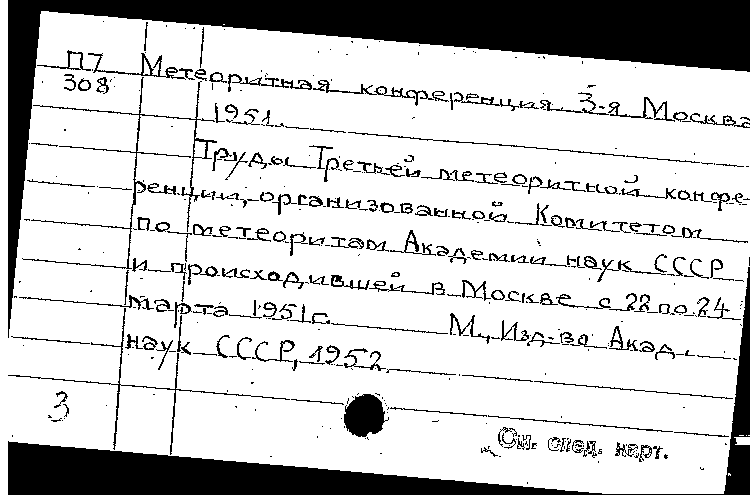 П7
308
Метеоритная конференция. 3-я. Москва
1951.
Труды Третьей метеоритной конфе-
ренции, организованной Комитетом
по метеоритам Академии наук СССР
и происходившей в Москве с 22 по 24
марта 1951г. М., Изд-во Акад.
наук СССР, 1952
3
См. след. карт.